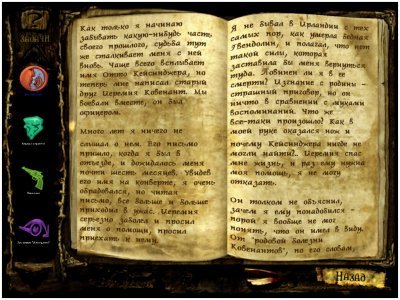 Как только я начинаю
забывать какую-нибудь часть
своего прошлого, судьба тут
же сталкивает меня с ней
вновь. Чаще всего всплывает
имя Отто Кейсинджера, но
теперь мне написал старый
друг Иеремия Ковенант. Мы
воевали вместе, он был
офицером.
Много лет я ничего не
слышал о нем. Его письмо
пришло, когда я был в
отъезде, и дожидалось меня
почти шесть месяцев. Увидев
его имя на конверте, я очень
обрадовался, но читая
письмо, все больше и больше
приходил в ужас. Иеремия
серьезно заболел и просил
меня о помощи, просил
приехать к нему.
Я не бывал в Ирландии с тех
самых пор, как умерла бедная
Гвендолин, и полагал, что нет
такой силы, которая
заставила бы меня вернуться
туда. Повинен ли я в ее
смерти? Изгнание с родины -
страшный приговор, но он
ничто в сравнении с муками
воспоминаний. Что же
все-таки произошло? Как в
моей руке оказался нож и
почему Кейсинджера нигде не
могли найти?.. Иеремия спас
мне жизнь, и раз ему нужна
моя помощь, я не могу
отказать.
Он толком не объяснил,
зачем я ему понадобился
порой я вообще не мог
понять, что он имел в виду.
От "родовой болезни
Ковенантов", по его словам,
Назад